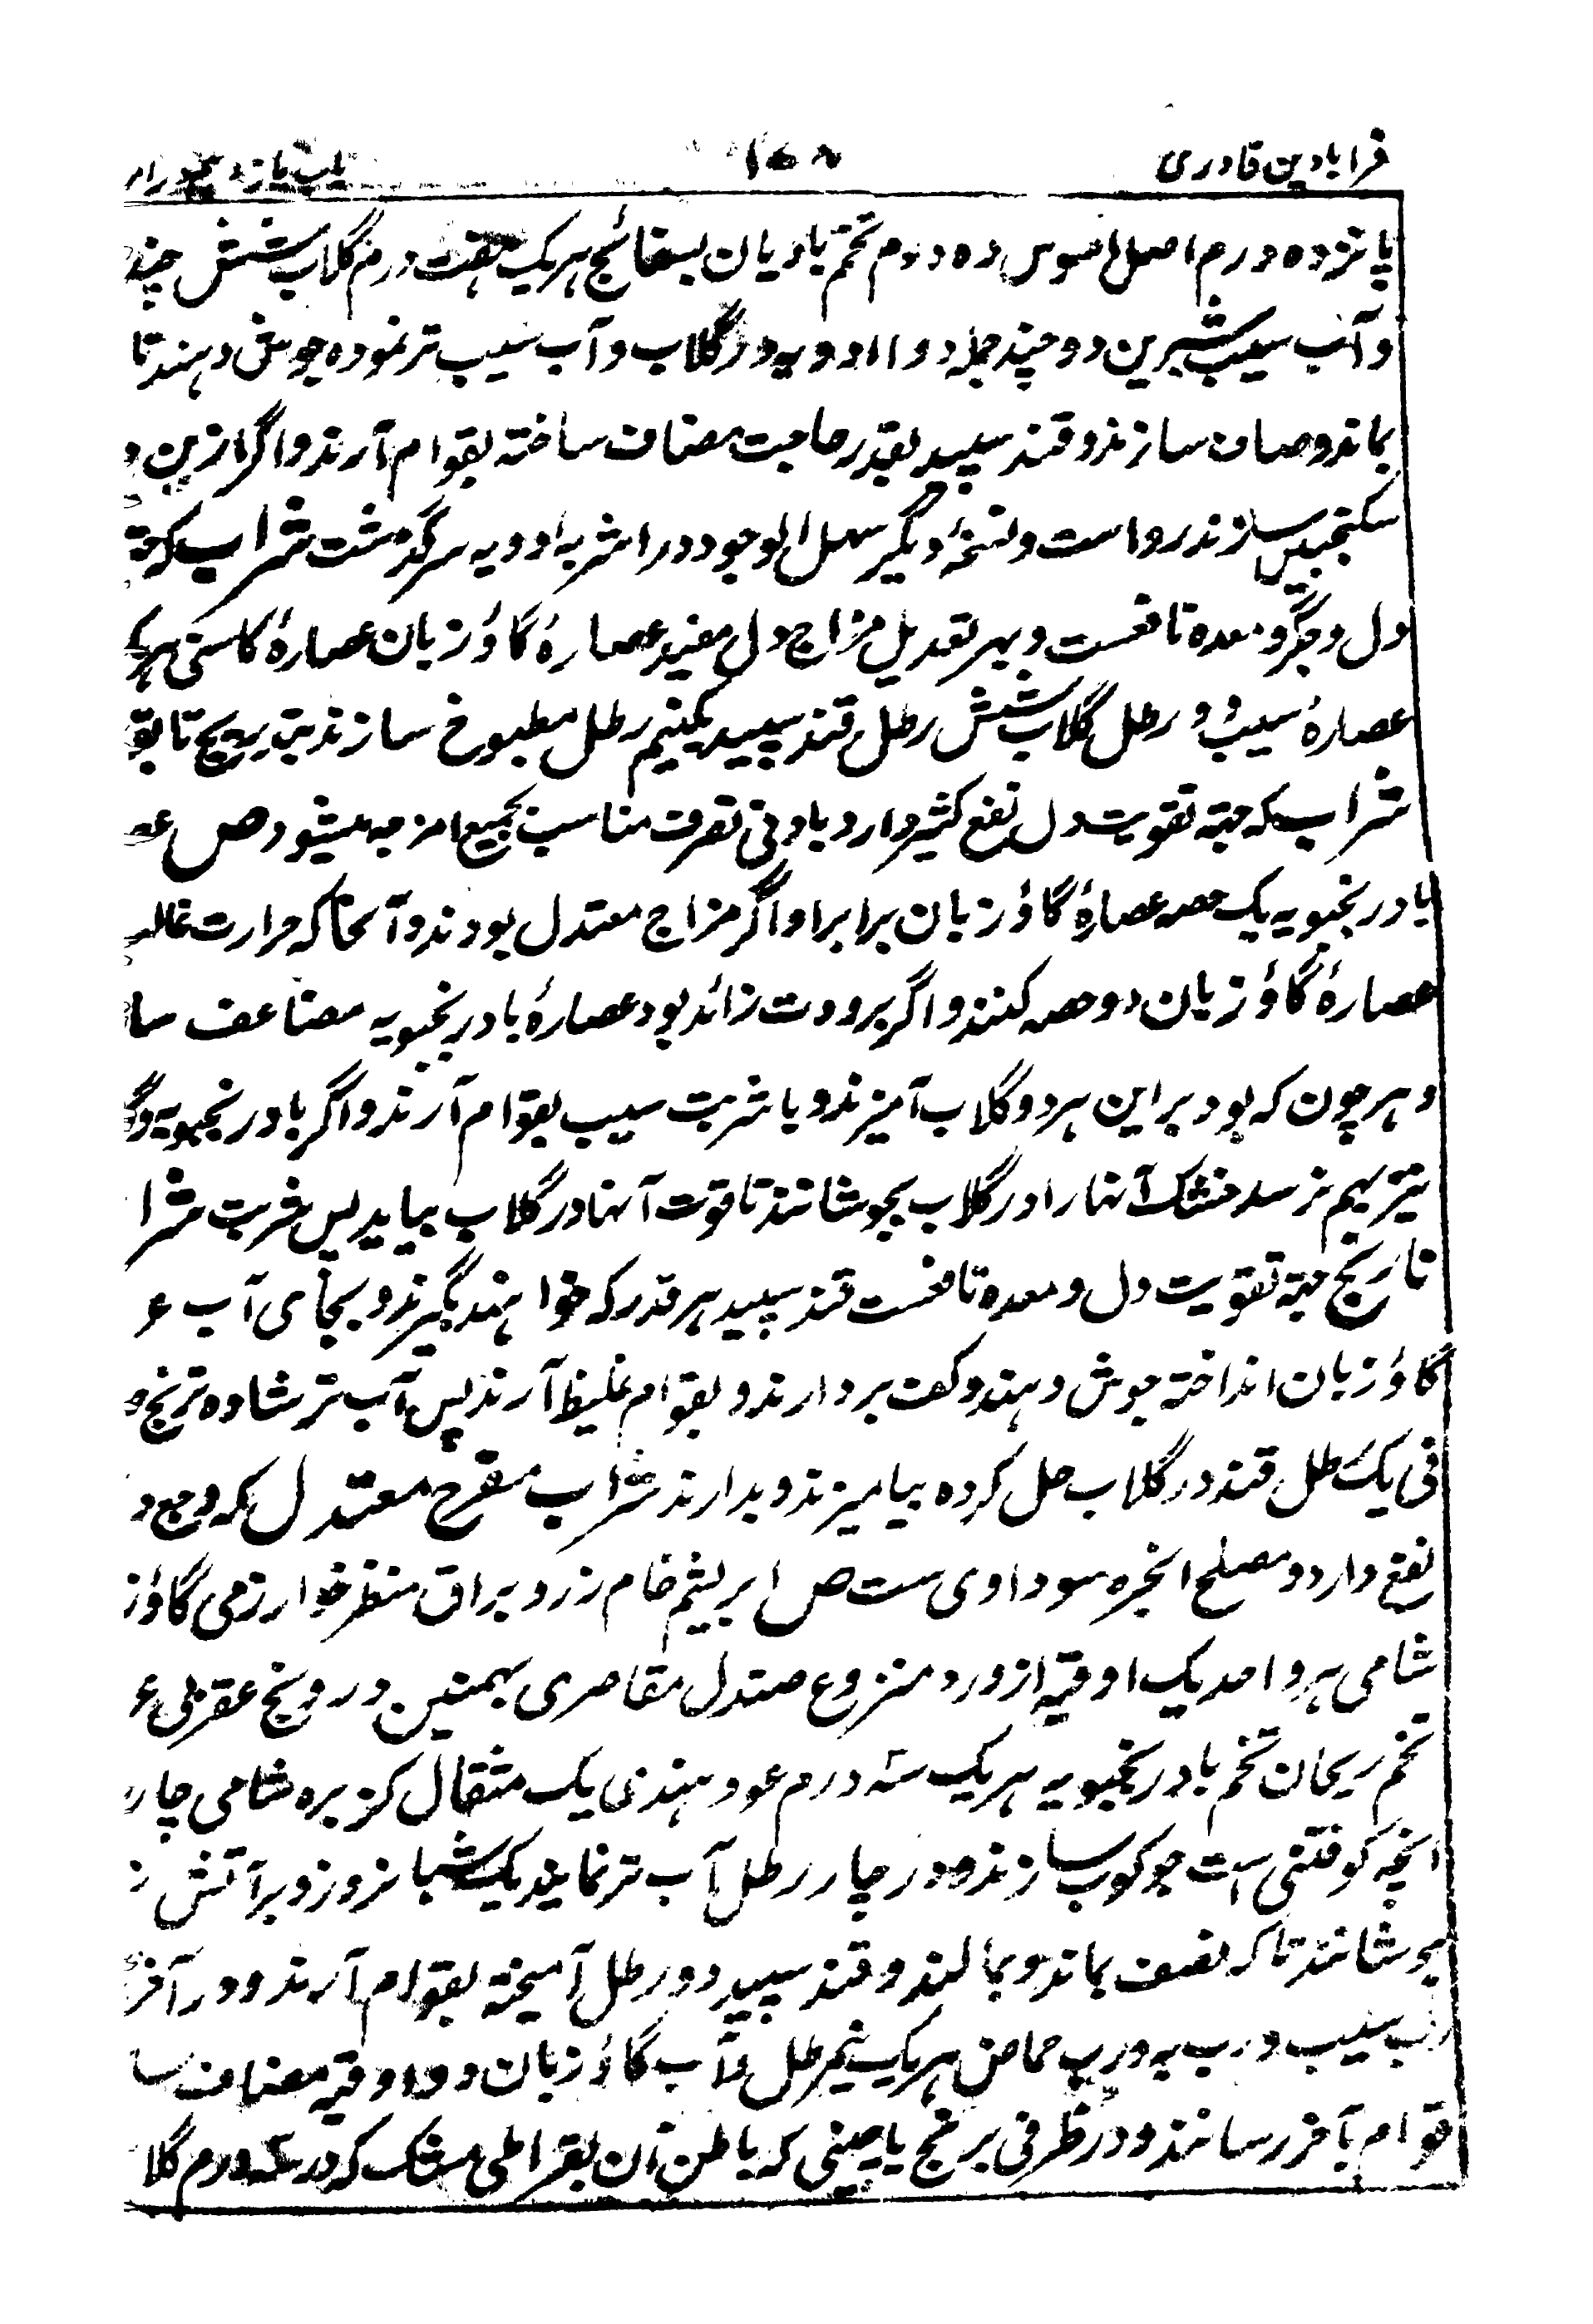 قرابادین قادری
پانزده درم اصل السوس ده درم تخم بادیان بسفائج هریک هفت درم گلاب شش چند
و آب سیب شیرین دو چند جمله دوا ادویه در گلاب و آب سیب تر نموده جوش دهند تا
بماند و صاف سازند و قند سپید بقدر حاجت مضاف ساخته بقوام آرند و اگر ازین
سکنجبین سازند رواست و نسخهٔ دیگر سهل الوجود در اشربه ادویه سرگذشت شراب که جهة
دل و جگر و معده نافعست و بهر تعدیل مزاج دل مفید عصارهٔ گاؤزبان عصارهٔ کاسنی هریک
عصارهٔ سیب دو رطل گلاب شش رطل قند سپید یکنیم رطل مطبوخ سازند بتدریج تا
شراب که جهة تقویت دل نفع کثیر دارد بادنی تصرف مناسب بجمیع امزجه میشود ص
بادرنجبویه یک حصه عصارهٔ گاؤزبان برابر او اگر مزاج معتدل بود ند و آنجا که حرارت غالب
عصارهٔ گاؤزبان دو حصه کنند و اگر برودت زائد بود عصارهٔ بادرنجبویه مضاعف سا
و هر چون که بود برابر این هر دو گلاب آمیزند و با شربت سیب بقوام آرند و اگر بادرنجبویه و
تر بهم نرسد خشک آنها را در گلاب بجوشانند تا قوت آنها در گلاب بیاید پس شربت شرا
نارنج جهة تقویت دل و معده نافعست قند سپید هر قدر که خواهند بگیرند و بجای آب ع
گاؤزبان انداخته جوش دهند و کف بردارند و بقوام غلیظ آرند پس آب ترشاوه ترنج
فی یک رطل قند در گلاب حل کرده بیامیزند و بدارند شراب مفرح معتدل که وجع
نفع دارد و مصلح ابخره سوداوی ست ص ابریشم خام زرد براق منظر خوارزمی گاؤز
شامی هر واحد یک اوقیه از ورد منزوع صندل مقاصری بهمنین درونج عقربی ع
تخم ریحان تخم بادرنجبویه هریک سه درم عود هندی یک مثقال کزبره شامی چار
انچه کوفتنی است جوکوب سازند و در چار رطل آب تر نمایند یک شبانروز و بر آتش ن
بجوشانند تا که نصف بماند و بمالند و قند سپید دو رطل آمیخته بقوام آرند و در آخر
رب سیب و رب به و رب حماض هریک نیم رطل و آب گاؤزبان دو اوقیه مضاف سا
قوام بآخر رسانند و در ظرفی برنج یا چینی که باطن آن بقراطی مشک که در درم گلا